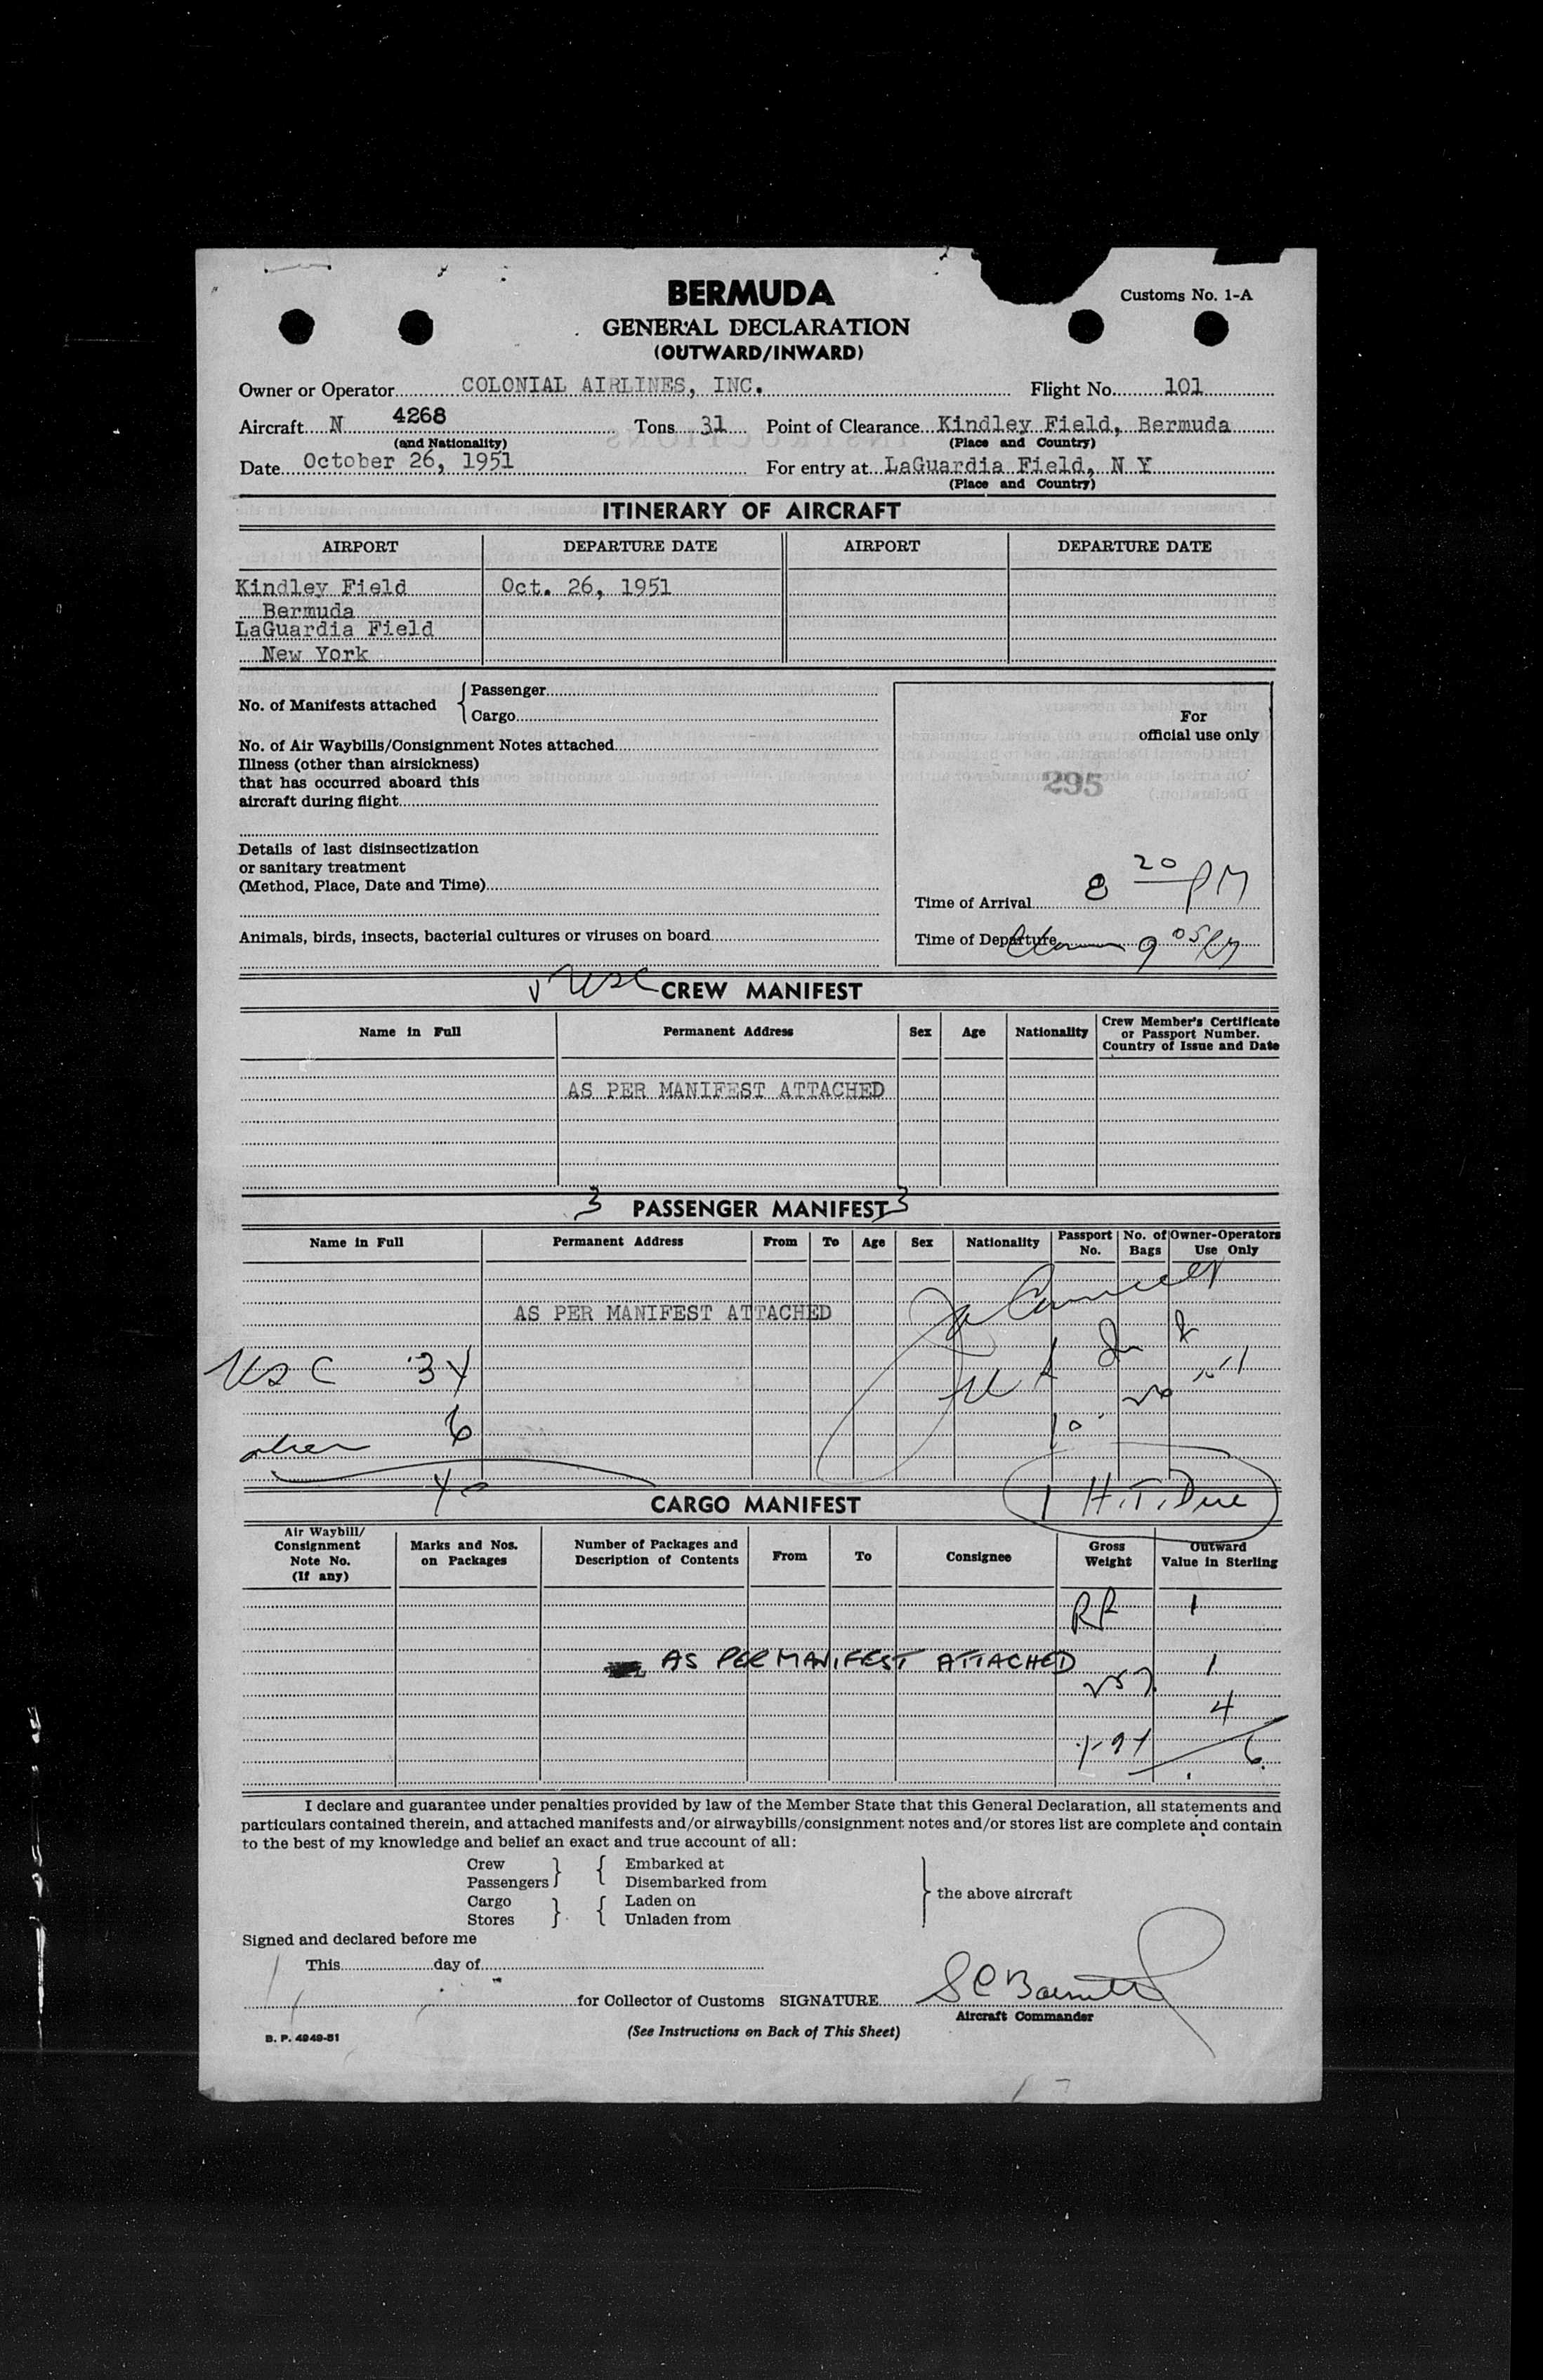 BERMUDA
Customs No. 1-A
GENERAL DECLARATION
(OUTWARD/INWARD)
Owner or Operator COLONIAL AIRLINES, INC. Flight No. 101
Aircraft N 4268 Tons 31 Point of Clearance Kindley Field, Bermuda
(and Nationality) (Place and Country)
Date October 26, 1951 For entry at LaGuardia Field, N Y
(Place and Country)
ITINERARY OF AIRCRAFT
AIRPORT DEPARTURE DATE AIRPORT DEPARTURE DATE
Kindley Field Oct. 26, 1951
Bermuda
LaGuardia Field
New York
No. of Manifests attached { Passenger
Cargo
For
official use only
No. of Air Waybills/Consignment Notes attached
Illness (other than airsickness)
that has occurred aboard this
aircraft during flight
295
Details of last disinsectization
or sanitary treatment
(Method, Place, Date and Time)
Time of Arrival 8 20 PM
Animals, birds, insects, bacterial cultures or viruses on board
Time of Departure 9 05
USC CREW MANIFEST
Name in Full Permanent Address Sex Age Nationality Crew Member's Certificate
or Passport Number.
Country of Issue and Date
AS PER MANIFEST ATTACHED
3 PASSENGER MANIFEST 3
Name in Full Permanent Address From To Age Sex Nationality Passport No. No. of Bags Owner-Operators Use Only
AS PER MANIFEST ATTACHED
USC 34
alien 6
40
1 H.T. Due
CARGO MANIFEST
Air Waybill/
Consignment
Note No.
(If any)
Marks and Nos.
on Packages
Number of Packages and
Description of Contents
From To Consignee
Gross
Weight
Outward
Value in Sterling
RR 1
AS PER MANIFEST ATTACHED 1
4
6
I declare and guarantee under penalties provided by law of the Member State that this General Declaration, all statements and
particulars contained therein, and attached manifests and/or airwaybills/consignment notes and/or stores list are complete and contain
to the best of my knowledge and belief an exact and true account of all:
Crew } { Embarked at
Passengers Disembarked from
Cargo } { Laden on
Stores Unladen from
} the above aircraft
Signed and declared before me
This day of
for Collector of Customs SIGNATURE
Aircraft Commander
B. P. 4949-51
(See Instructions on Back of This Sheet)